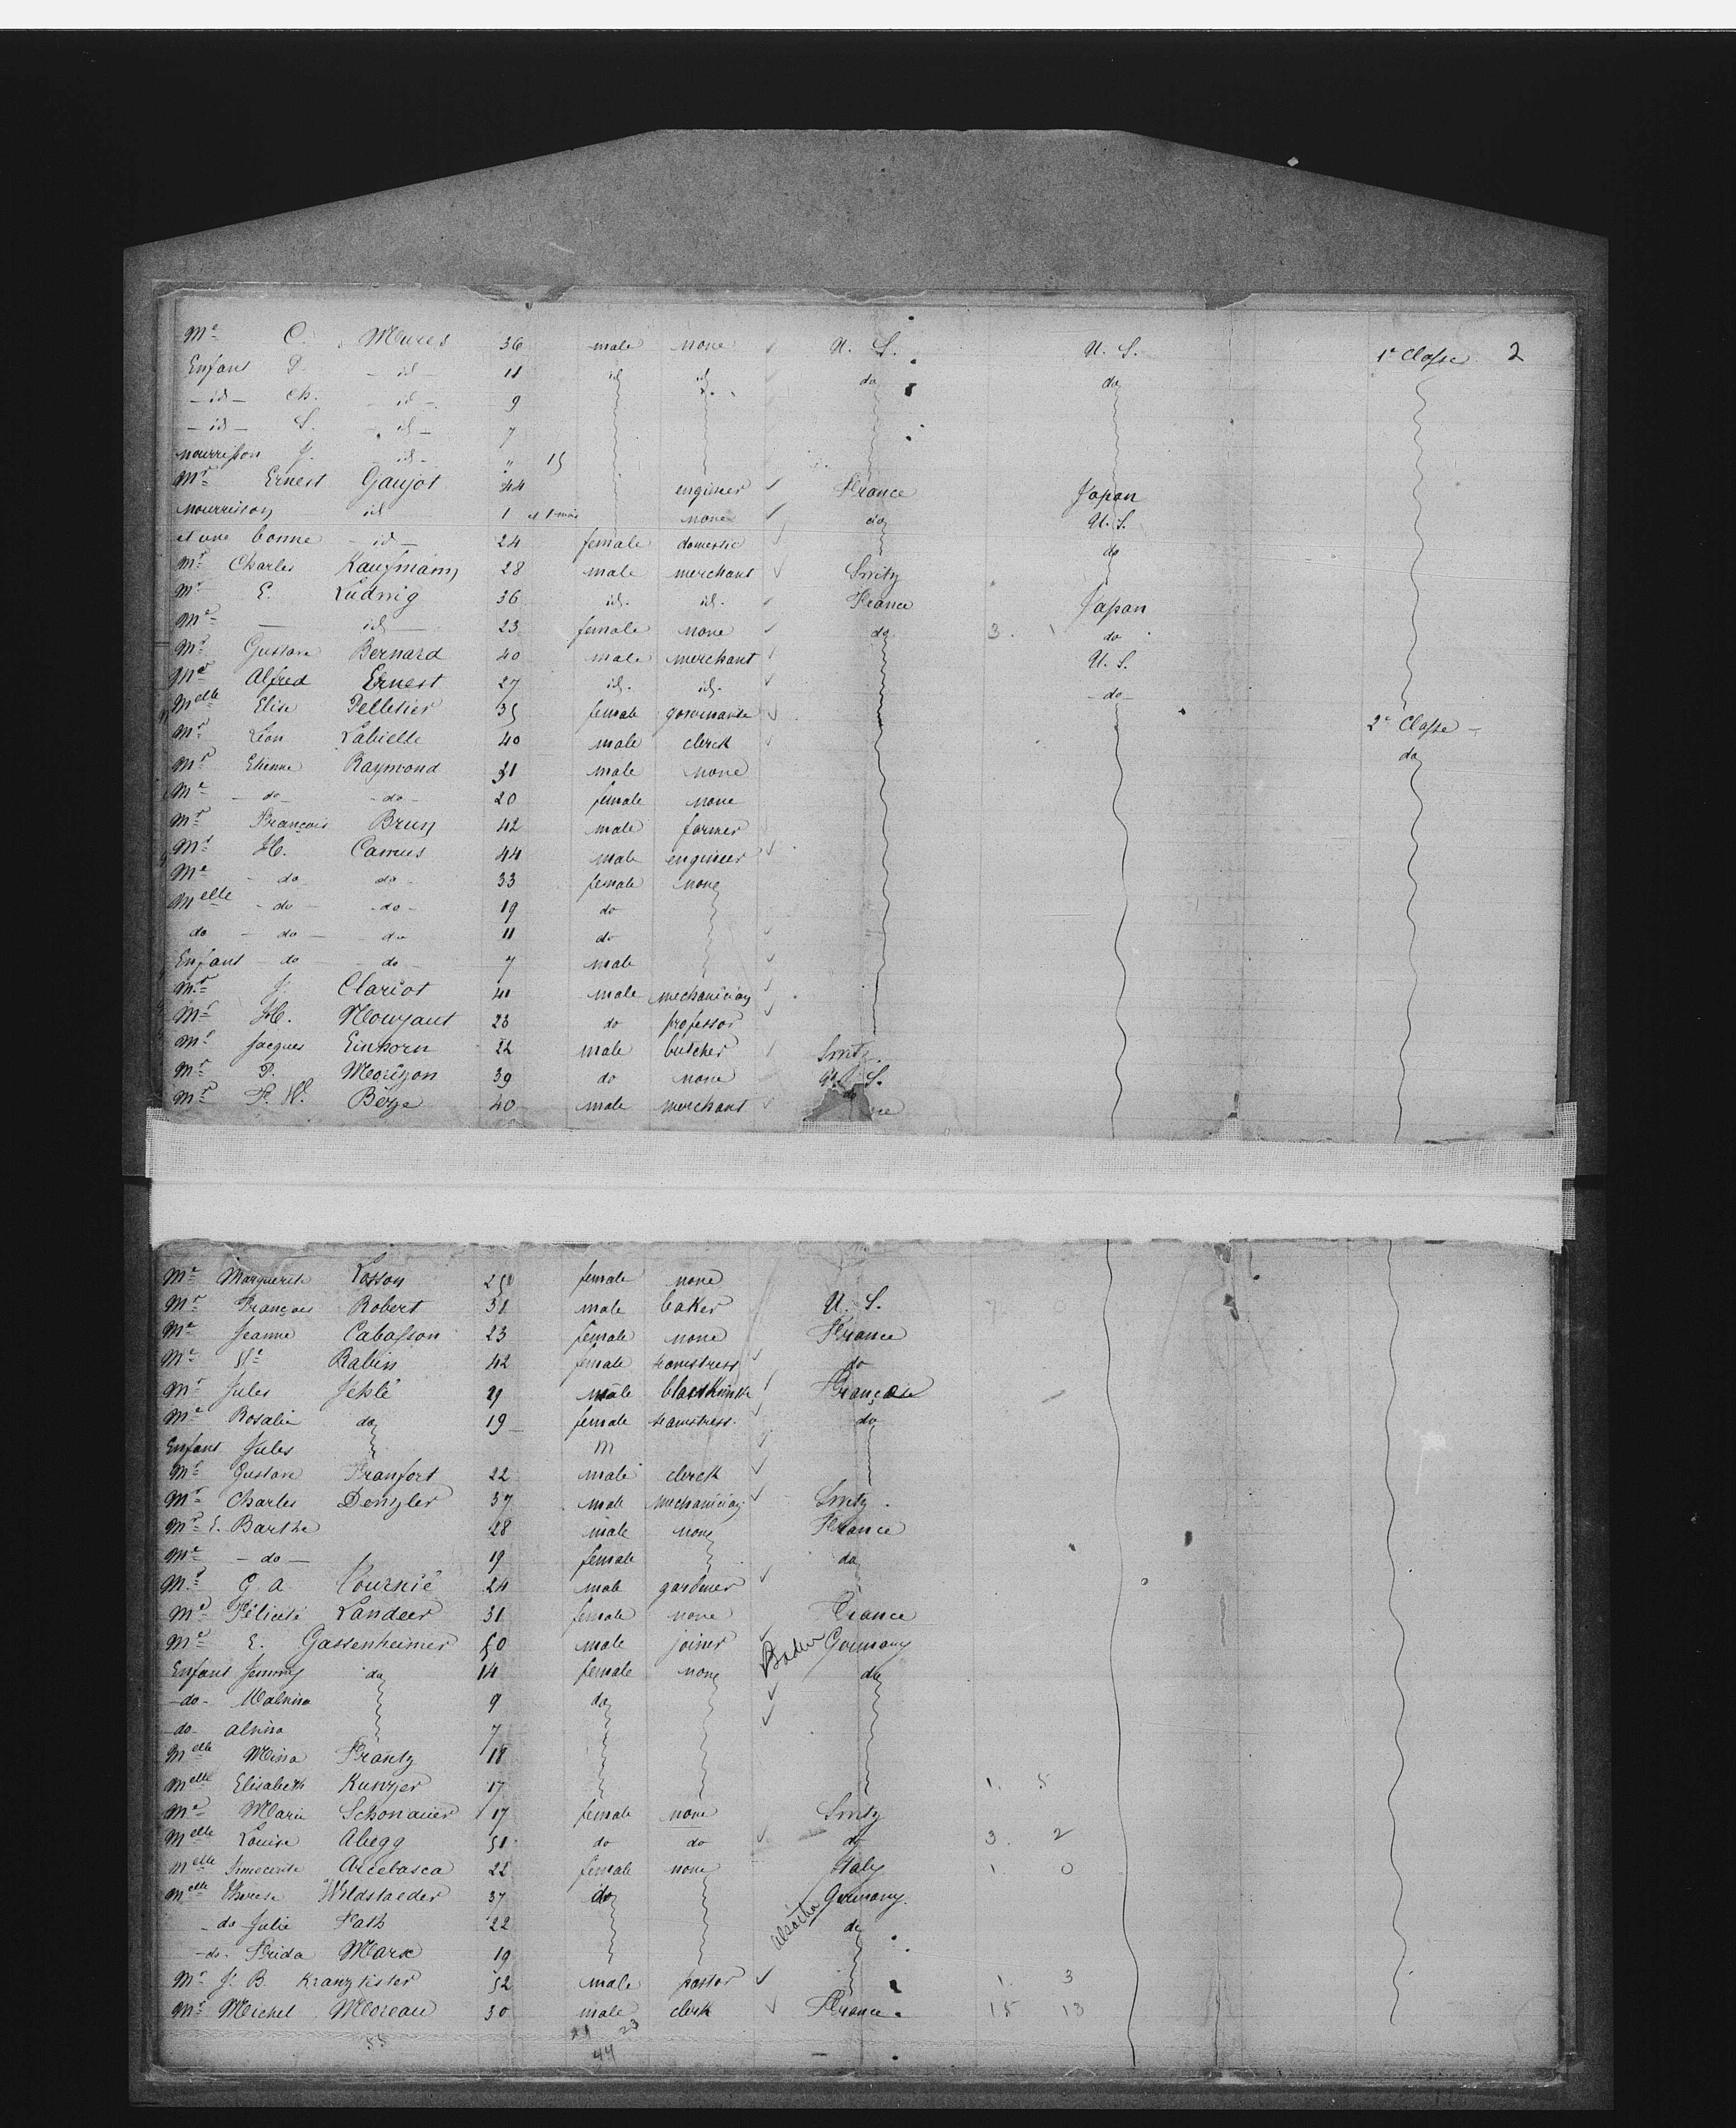 Me C. Mures 36 male none U. S. U. S. 1e Classe 2
Enfant P. - id - 11 id id do do
- id - Ch. - id - 9
- id - S. - id - 7
nourrisson J. - id - " 15
Mr Ernest Gaujot 44 engineer France Japan
nourrisson id 1 et 1 mois none do U. S.
et une bonne - id - 24 female domestic do
Mr Charles Kaufmann 28 male merchant Switz
Mr E. Ludwig 36 id. id. France Japan
Me — id — 23 female none do 3. 1 do
Mr Gustave Bernard 40 male merchant U. S.
Mr Alfred Ernest 27 id. id. - do -
Melle Elise Pelletier 35 female gouvernante 2e Classe -
Mr Léon Labielle 40 male clerck do
Mr Etienne Raymond 31 male none
Me - do - - do - 20 female none
Mr François Brun 42 male farmer
Mr H. Camus 44 male engineer
Me - do - do - 33 female none
Melle - do - - do - 19 do
do - do - do 11 do
Enfant - do - do - 7 male
Mr J. Clariot 41 male mechanician
Mr H. Mouyaut 23 do professor
Mr Jacques Einhorn 22 male butcher Switz.
Mr P. Morizon 39 do none U. S.
Mr F. W. Bèrje 40 male merchant
Me Marguerite Losson 25 female none
Mr François Robert 31 male baker U. S.
Me Jeanne Cabasson 23 female none France
Me Ve Rabin 42 female seamstress do
Mr Jules Jehlé 29 male blacksmith France
Me Rosalie do 19 female seamstress. do
Enfant Jules m
Mr Gustave Franfort 22 male clerck
Mr Charles Denzler 37 male mechanician Switz.
Mr E. Barthe 28 male none France
Me - do - 19 female do
Mr G. A. Fournié 24 male gardner
Me Félicité Landeer 31 female none France
Mr E. Gassenheimer 50 male joiner Baden Germany
Enfant Jemmy do 14 female none do
- do - Malvina 9 do
- do - Alvina 7
Melle Mina Frantz 18
Melle Elisabeth Kunzer 17 1. 5
Me Marie Schonauer 17 female none Switz
Melle Louise Abegg 51 do do do 3. 2
Melle Innocente Arcebasca 22 female none Italy 1. 0
Melle Therese Wildstaeder 37 do Alsatia Germany.
- do Julie Fath 22 do
- do - Frida Marx 19
Mr J. B. Kranzfister 52 male pastor 1. 3
Mr Michel Moreau 30 male clerk France. 15 13
55 21 23
44